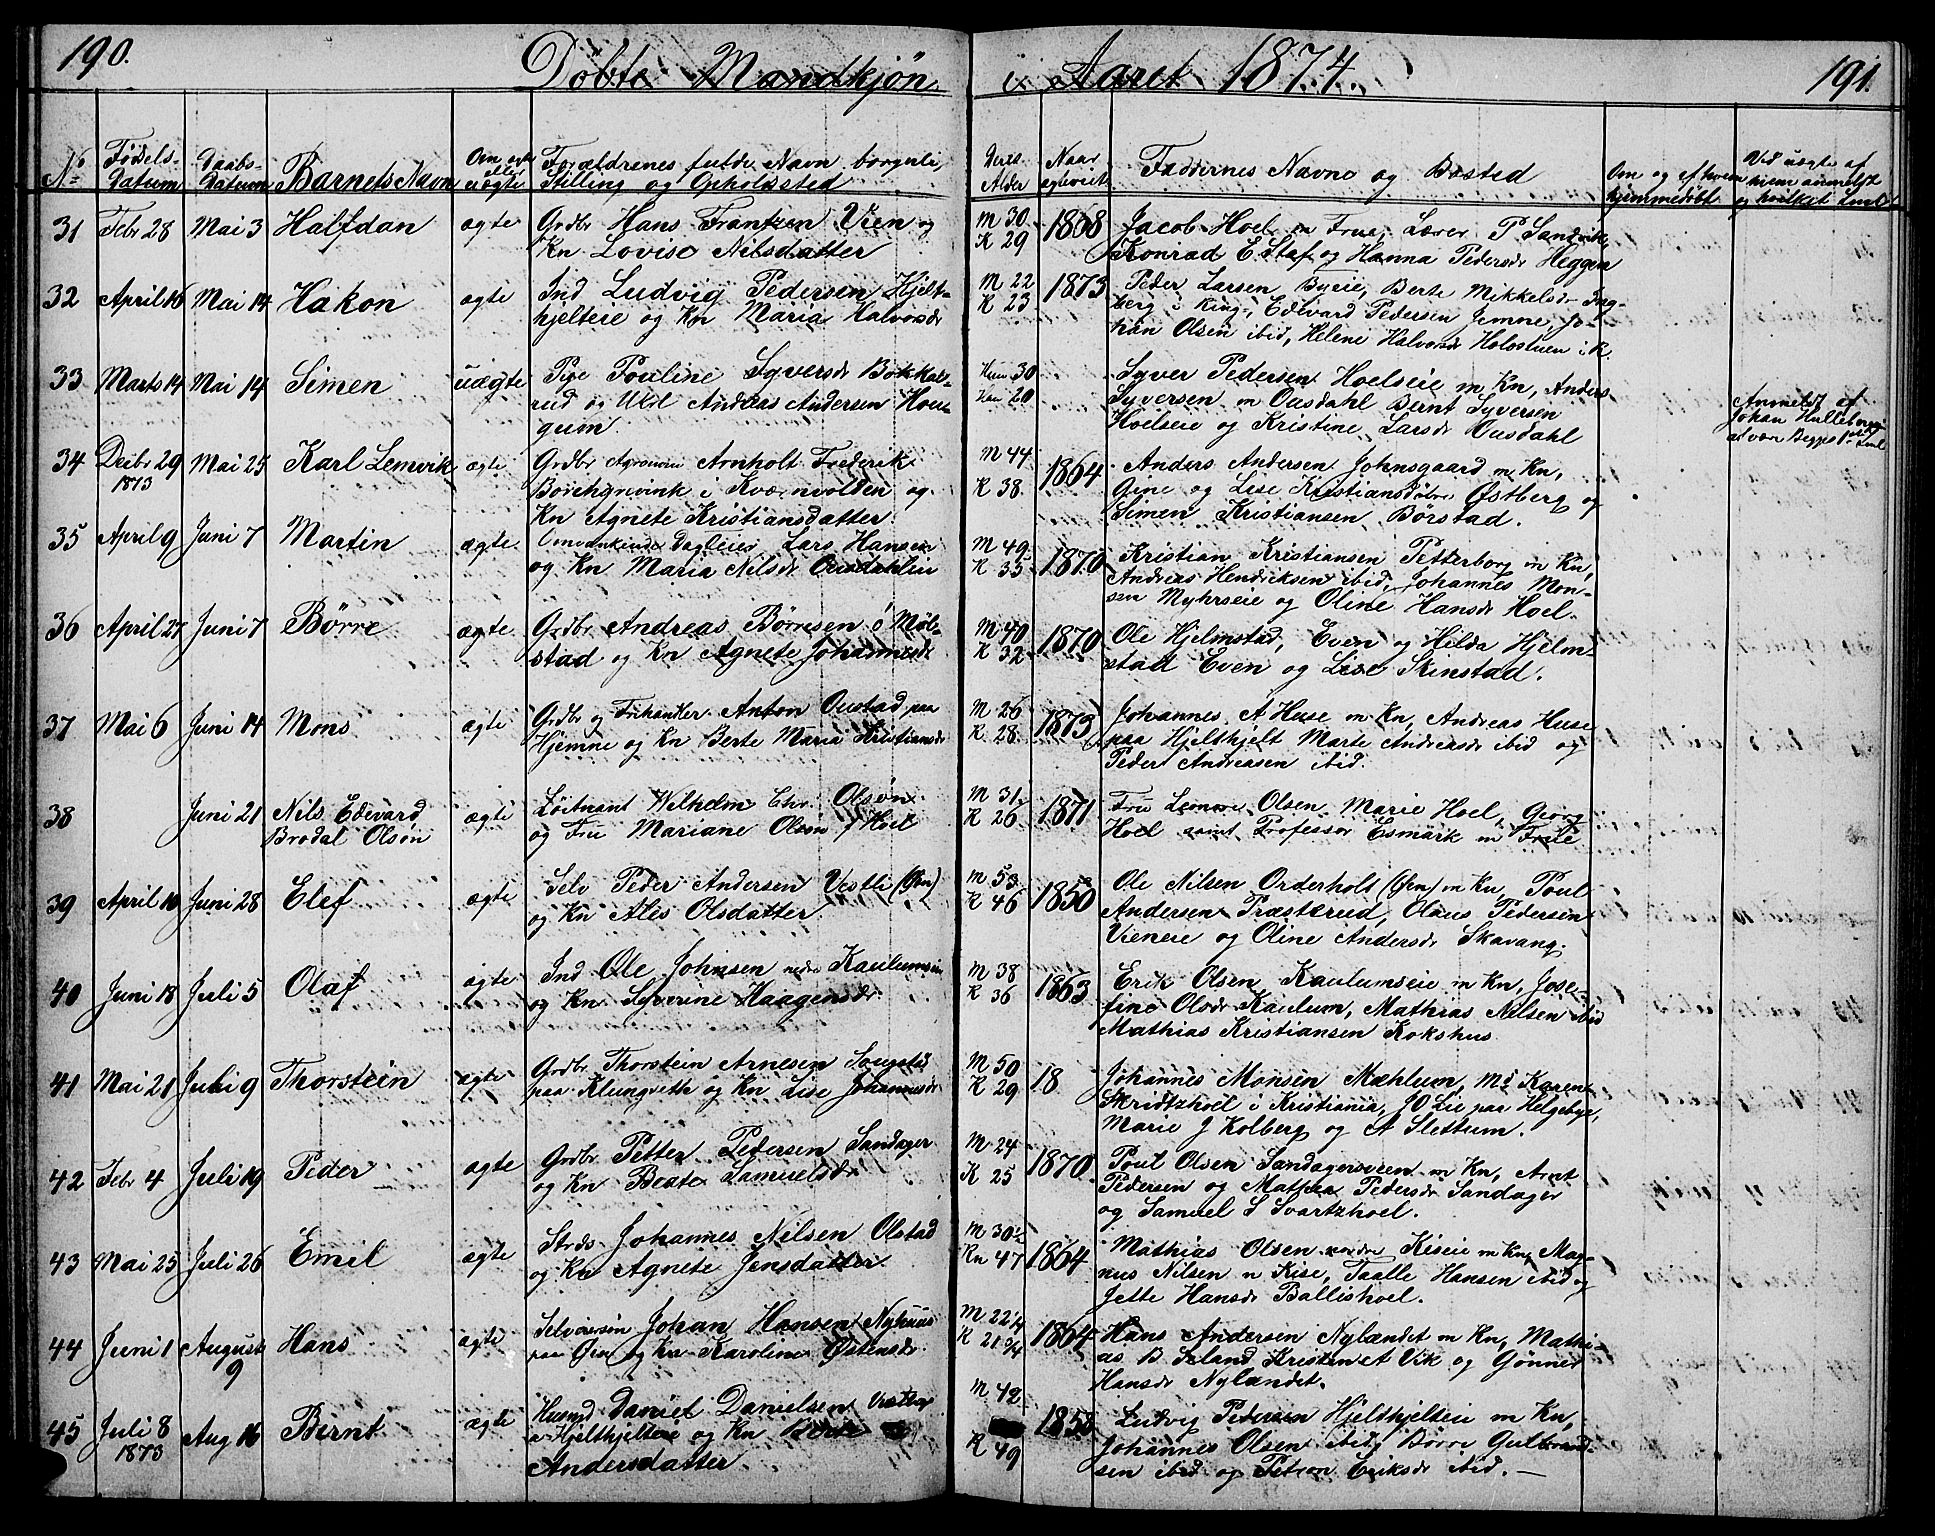 190. Döbte Mandkjön i Aaret 1874. 191.
No Födsels-Datum Daabs-Datum Barnets Navn Om ægte eller uægte Forældrenes fulde Navn borgerli, Stilling og Opholdssted Deres Alder Naar egteviet Faddernes Navne og Bosted Om og af hvem hjemmedöbt Ved uægte af hvem anmeldt og hvilket Leil
31 Febr 28 Mai 3 Halfdan ægte Grdbr Hans Frantzen Vien og M 30 1868 Jacob Hoel m Frue, Lærer P Sandvik
Kn Lovise Nilsdatter K 29 Konrad E Staf og Hanna Pedersdr Heggen
32 April 16 Mai 14 Hakon ægte Ind Ludvig Pedersen Hjelt- M 22 1873 Peder Larsen Byeie, Berte Mikkelsdr
hjelteie og Kn Maria Halvorsdr K 23 berg i Ring, Edevard Pedersen Jemne, Jo-
han Olsen ibid, Helene Halvorsdr Holostuen i R.
33 Marts 14 Mai 14 Simen uægte Pige Pouline Syversdr Bakkal- Hun 30 Syver Pedersen Hoelseie m Kn, Anders
rud og Andreas Andersen Hou- Han 20 Syversen m Ousdahl Bernt Syversen Anmeldt af
gum Hoelseie og Kristine Larsdr Ousdahl Johan
34 Decbr 29 1873 Mai 25 Karl Lemvik ægte Grdbr Agronom Arnholt Frederik M 44 1864 Anders Andersen Johnsgaard m Kn,
Borchgrevink i Kværnvolden og K 38 Gine og Lise Kristiansdötre Østberg og
Kn Agnete Kristiansdatter Simen Kristiansen Börstad.
35 April 9 Juni 7 Martin ægte Omvankende Dagleier Lars Hansen M 49 1870 Kristian Kristiansen Petterborg m Kn,
og Kn Maria Nilsdr Ousdahlin K 35 Andreas Hendriksen ibid, Johannes Mon-
sen Myhrseie og Oline Hansdr Hoel.
36 April 27 Juni 7 Börre ægte Grdbr Andreas Börresen ö Möl- M 40 1870 Ole Hjelmstad, Even og Hilda Hjelm-
stad og Kn Agnete Johannesdr K 32 stad Even og Lise Skinstad.
37 Mai 6 Juni 14 Mons ægte Grdbr og Frihandler Anton Oustad paa M 26 1873 Johannes A Huse m Kn, Andreas Huse
Hjemne og Kn Berte Maria Kristiansdr K 28 paa Hjelthjelt Marte Andreasdr ibid og
Peder Andreasen ibid.
38 Juni 21 Nils Edevard ægte Löitnant Wilhelm Chr. Olsön M 31 1871 Fru Olsen, Marie Hoel, Georg
Brodal Olsön og Fru Mariane Olsön f Hoel K 26 Hoel samt Professor Esmark m Frue
39 April 10 Juni 28 Elef ægte Selv Peder Andersen Vestli (Öen) M 53 1850 Ole Nilsen Orderholt (Öen) m Kn, Poul
og Kn Ales Olsdatter K 46 Andersen Præsterud, Olaus Pedersen
Vieneie og Oline Andersdr Skavang.
40 Juni 18 Juli 5 Olaf ægte Ind Ole Johnsen nedre Kaulumseie M 38 1863 Erik Olsen Kaulumseie m Kn, Jose-
og Kn Syverine Haagensdr K 36 fine Olsdr Kaulum, Mathias Nilsen ibid
Mathias Kristiansen Kokshus
41 Mai 21 Juli 9 Thorstein ægte Grdbr Thorstein Arnesen Sougstad M 50 18 Johannes Monsen Mæhlum, Md Karen
paa Klungveth og Kn Lise Johannesdr K 29 Skridtzhoel i Kristiania, J O Lie paa Helgebye,
Marie J Kolberg og A Slettum.
42 Febr 4 Juli 19 Peder ægte Grdbr Petter Pedersen Sandager M 24 1870 Poul Olsen Sandagersveen m Kn, Arnt
og Kn Beate Samuelsdr K 25 Pedersen og Mathea Pedersdr Sandager
og Samuel S Svartzhoel.
43 Mai 25 Juli 26 Emil ægte Johannes Nilsen Olstad M 30½ 1864 Mathias Olsen nordre Kiseie m Kn, Mag-
og Kn Agnete Jensdatter Kn 47 nus Nilsen n Kise, Taalle Hansen ibid og
Jette Hansdr Ballishoel.
44 Juni 1 August 9 Hans ægte Selveiersön Johan Hansen Nyhuus M 22¼ 1864 Hans Andersen Nylændet m Kn, Mathi-
paa Öen og Kn Karoline Östensdr K 21¾ as B Kristen A Vik og Gönner
Hansdr Nylændet.
45 Juli 8 1873 Aug 16 Bernt ægte Husmd Daniel Danielsen M 42 1858 Ludvig Pedersen Hjelthjelteie m Kn,
Hjelthjelteie og Kn Berte K 49 Johannes Olsen ibid, Börre Gulbrand-
Andersdatter sen ibid og Petron Eriksdr ibid. —